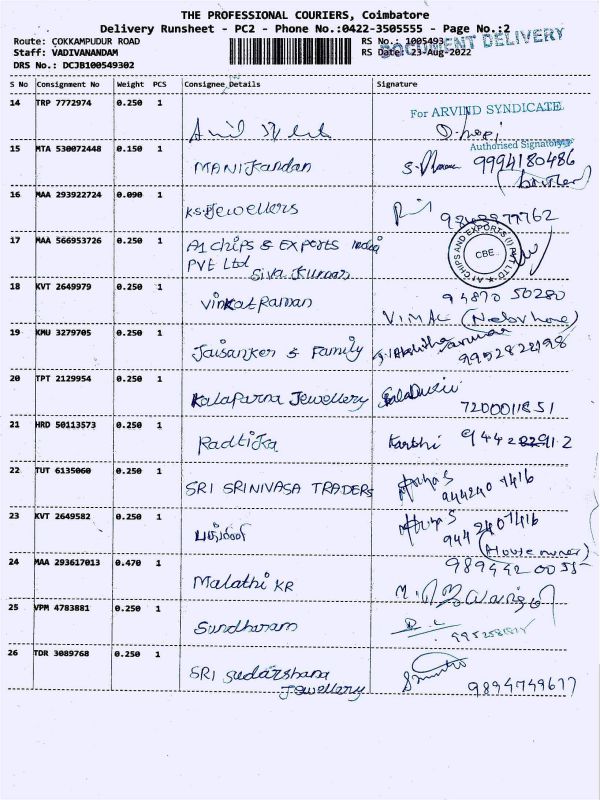 THE PROFESSIONAL COURIERS, Coimbatore
Delivery Runsheet - PC2 - Phone No.:0422-3505555 - Page No.:2
Route: COKKAMPUDUR ROAD RS No.: 1005493
DOCUMENT DELIVERY
Staff: VADIVANANDAM RS Date: 23-Aug-2022
DRS No.: DCJB100549302
S No Consignment No Weight PCS Consignee Details Signature
14 TRP 7772974 0.250 1
For ARVIND SYNDICATE
Authorised Signatory
15 MTA 530072448 0.150 1
MANIKandan 9994180486
(brother)
16 MAA 293922724 0.090 1
K.S.Jewellers
17 MAA 566953726 0.250 1
A1 Chips & Exports India
PVT Ltd
Siva Kumar
A1 CHIPS AND EXPORTS (I) PVT LTD
CBE
18 KVT 2649979 0.250 1
Vinkat Raman 94870 50280
VIMAL
19 KMU 3279705 0.250 1
Jaisanker & Family
20 TPT 2129954 0.250 1
Kalaparna Jewellery
7200011851
21 HRD 50113573 0.250 1
Radtika Karthi
22 TUT 6135060 0.250 1
SRI SRINIVASA TRADERS
944240 7416
23 KVT 2649582 0.250 1
944240 7416
(House owner)
24 MAA 293617013 0.470 1
989442 0055
Malathi KR
25 VPM 4783881 0.250 1
Sundharam
26 TDR 3089768 0.250 1
SRI Sudarshana
Jewellery 9894749617